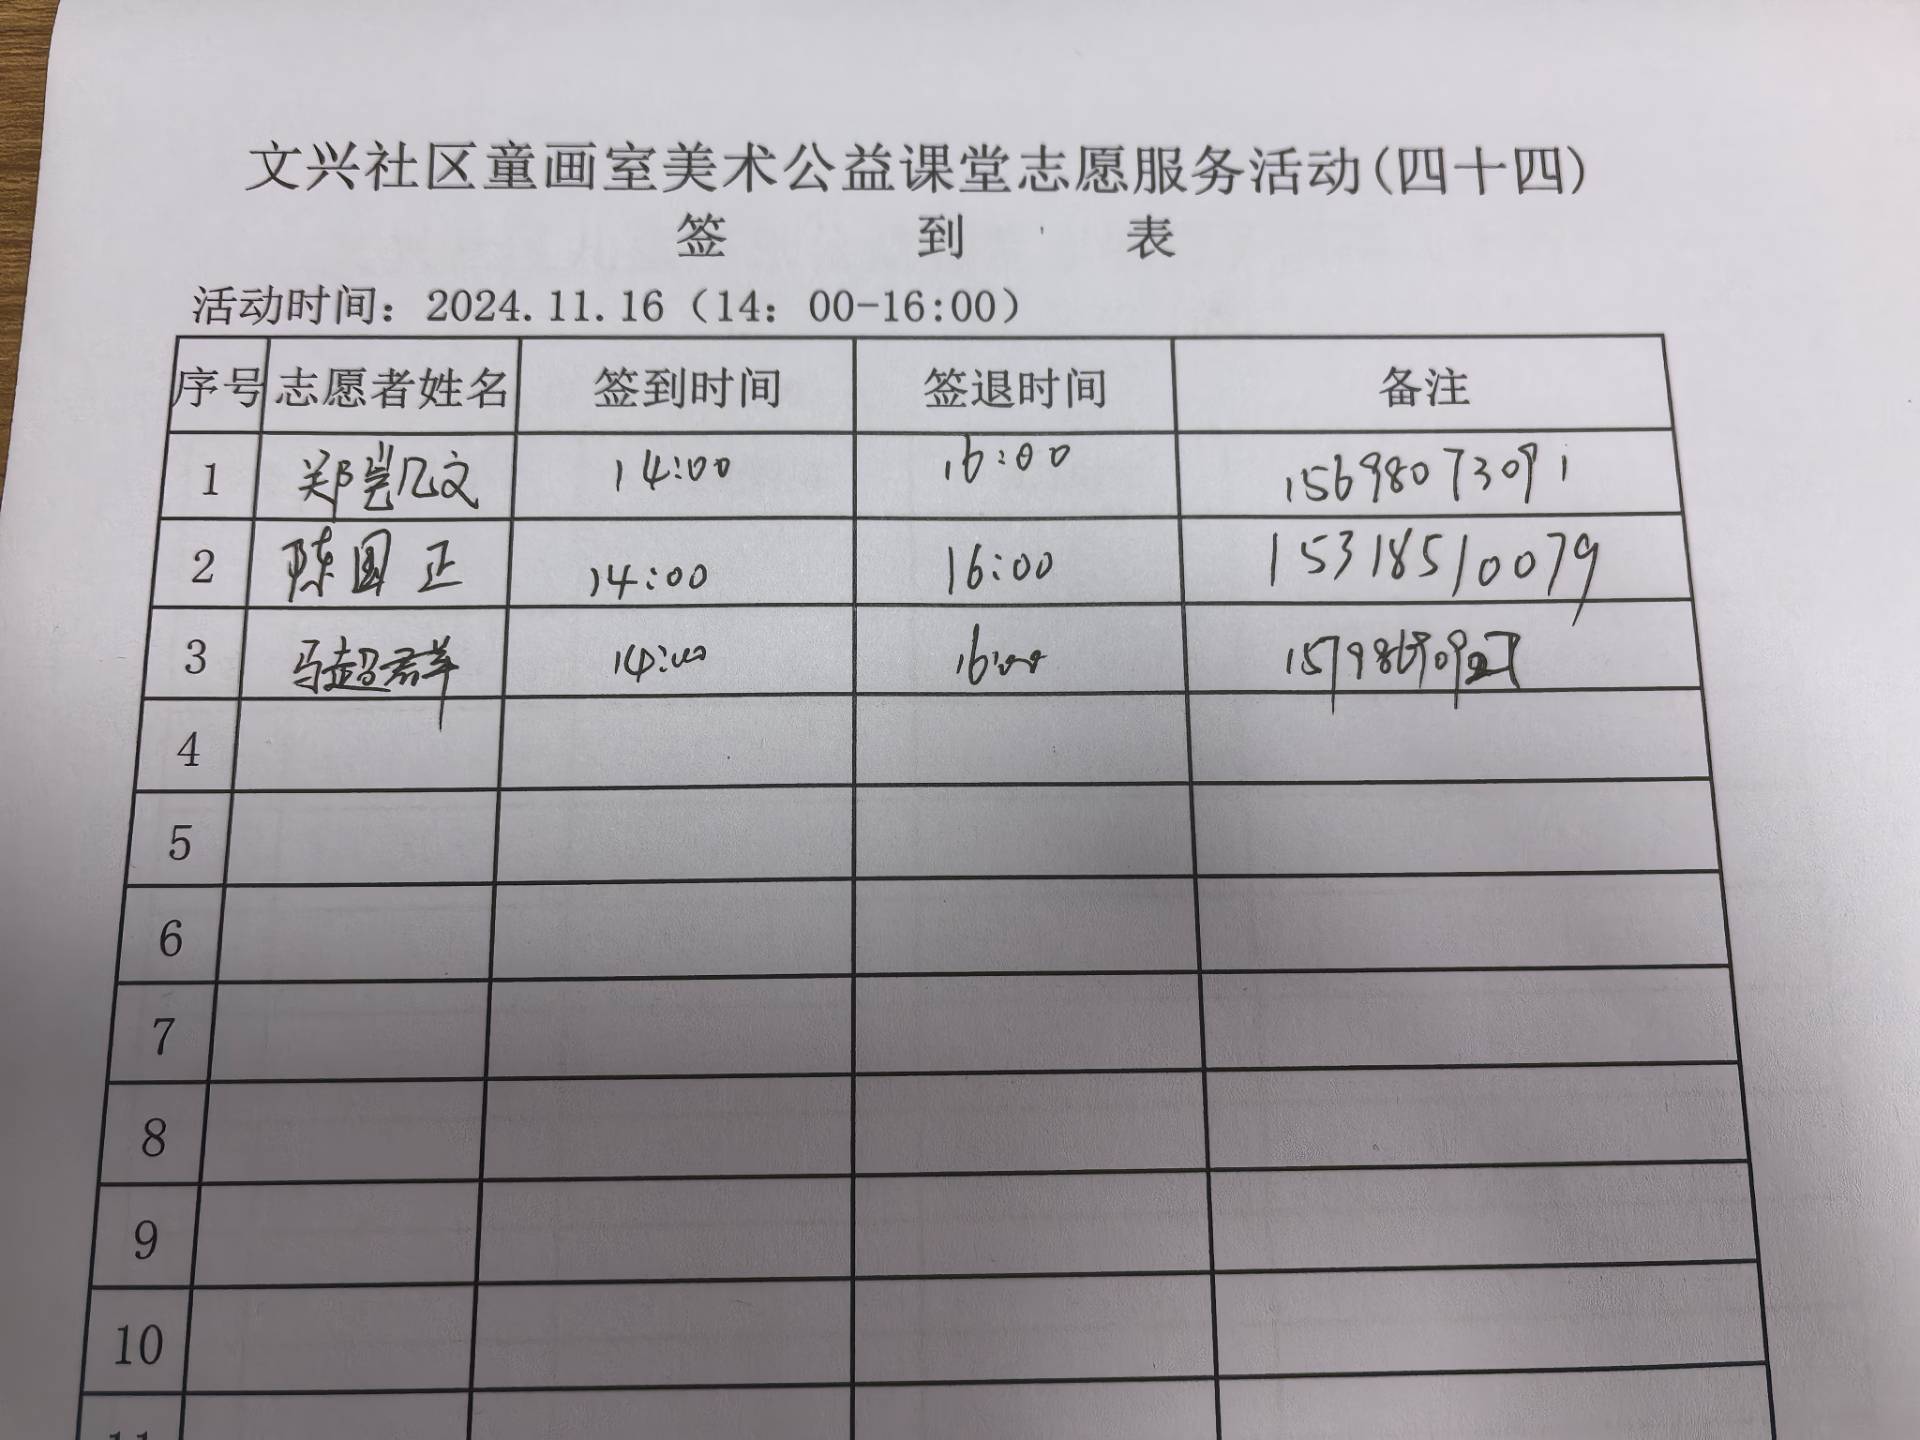 文兴社区童画室美术公益课堂志愿服务活动(四十四)
签 到 表
活动时间：2024.11.16（14：00-16:00）
序号 志愿者姓名 签到时间 签退时间 备注
1 郑凯文 14:00 16:00 15698073091
2 陈国正 14:00 16:00 15318510079
3 马超群 14:00 16:00
4
5
6
7
8
9
10
11